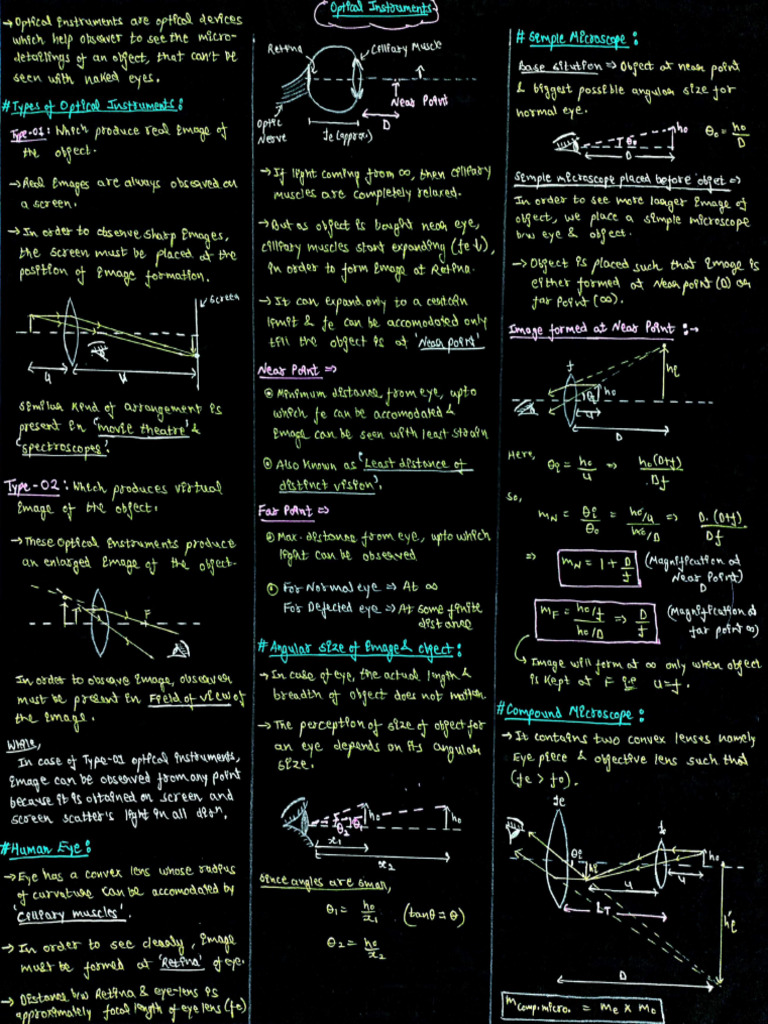 Optical Instruments
→ Optical Instruments are optical devices
which help observer to see the micro-
detailings of an object, that can't be
seen with naked eyes.
# Types of Optical Instruments:
Type-01: Which produce real Image of
the object.
→ Real Images are always observed on
a screen.
→ In order to observe sharp Images,
the screen must be placed at the
position of Image formation.
Screen
u
v
Similar kind of arrangement is
present in 'movie theatre' &
'spectroscopes'.
Type-02: Which produces virtual
Image of the object.
→ These Optical Instruments produce
an enlarged Image of the object.
F
In order to observe Image, observer
must be present in Field of view of
the Image.
While,
In case of Type-01 optical instruments,
Image can be observed from any point
because it is obtained on screen and
screen scatter's light in all dirn.
# Human Eye:
→ Eye has a convex lens whose radius
of curvature can be accomodated by
'Cilliary muscles'.
→ In order to see clearly, Image
must be formed at 'Retina' of eye.
→ Distance b/w Retina & eye-lens is
approximately focal length of eye lens (fe)
Retina
Cilliary Muscle
Near Point
D
Optic
Nerve
fe (approx.)
→ If light coming from ∞, then cilliary
muscles are completely relaxed.
→ But as object is bought near eye,
cilliary muscles start expanding (fe↓),
in order to form Image at Retina.
→ It can expand only to a certain
limit & fe can be accomodated only
till the object is at 'Near point'
Near Point ⇒
Minimum distance from eye, upto
which fe can be accomodated &
Image can be seen with least strain
Also known as 'Least distance of
distinct vision'.
Far Point ⇒
Max. distance from eye, upto which
light can be observed
For Normal eye ⇒ At ∞
For Defected eye ⇒ At some finite
distance
# Angular size of Image & object:
→ In case of eye, the actual length &
breadth of object does not matter.
→ The perception of size of object for
an eye depends on its angular
size.
θ2 θ1 ho ho
x1
x2
Since angles are small,
θ1 = ho/x1 (tanθ = θ)
θ2 = ho/x2
# Simple Microscope:
Base sitution ⇒ Object at near point
& biggest possible angular size for
normal eye.
θo ho θo = ho/D
D
Simple microscope placed before object ⇒
In order to see more larger Image of
object, we place a simple microscope
b/w eye & object.
→ Object is placed such that Image is
either formed at Near point (D) or
far point (∞).
Image formed at Near Point :→
f
hi
θi ho
u
D
Here,
θi = ho/u ⇒ ho(D+f)/Df
So,
mN = θi/θo = ho/u / ho/D ⇒ D.(D+f)/Df
⇒ mN = 1 + D/f (Magnification at
Near Point)
D
mF = ho/f / ho/D ⇒ D/f (Magnification at
far point ∞)
Image will form at ∞ only when object
is kept at F i.e u=f.
# Compound Microscope:
→ It contains two convex lenses namely
Eye piece & objective lens such that
(fe > fo).
fe
fo
θi hi ho
u u
LT
hi'
D
mcomp.micro. = me x mo